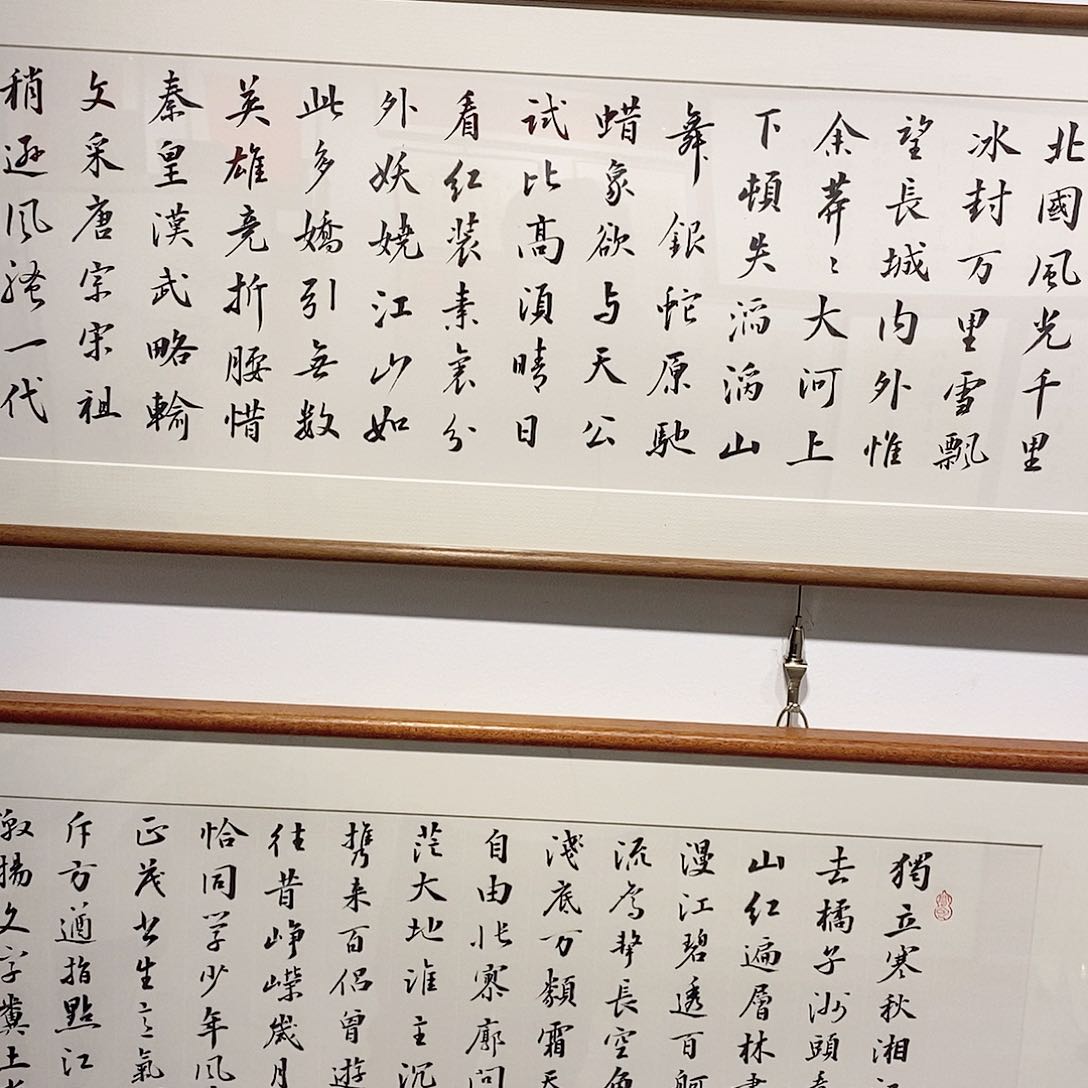 北國風光千里
冰封万里雪飄
望長城内外惟
余莽〻大河上
下頓失滔滔山
舞銀蛇原馳
蜡象欲与天公
試比高須晴日
看红装素裹分
外妖娆江山如
此多嬌引無数
英雄竞折腰惜
秦皇漢武略輸
文采唐宗宋祖
稍逊風骚一代
獨立寒秋湘
去橘子洲頭看
山红遍層林
漫江碧透百舸
流鹰擊長空魚
淺底万類霜天
自由怅寥廓問
茫大地谁主沉
携来百侣曾遊
往昔峥嵘歲月
恰同学少年風
正茂书生意氣
斥方遒指點江
激揚文字糞土